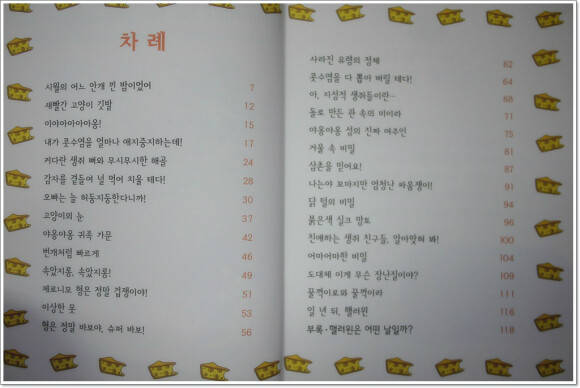 차 례
시월의 어느 안개 낀 밤이었어 7
새빨간 고양이 깃발 12
이야아아아아옹! 15
내가 콧수염을 얼마나 애지중지하는데! 17
커다란 생쥐 뼈와 무시무시한 해골 24
감자를 곁들여 널 먹어 치울 테다! 28
오빠는 늘 허둥지둥한다니까! 30
고양이의 눈 37
야옹야옹 귀족 가문 42
번개처럼 빠르게 46
속았지롱, 속았지롱! 49
제로니모 형은 정말 겁쟁이야! 51
이상한 못 53
형은 정말 바보야, 슈퍼 바보! 56
사라진 유령의 정체 62
콧수염을 다 뽑아 버릴 테다! 64
아, 지성적 생쥐들이란… 68
돌로 만든 관 속의 미이라 71
야옹야옹 성의 진짜 여주인 75
거울 속 비밀 81
삼촌을 믿어요! 87
나는야 꼬마지만 엄청난 싸움쟁이! 91
닭 털의 비밀 94
붉은색 실크 망토 96
친애하는 생쥐 친구들, 알아맞혀 봐! 100
어마어마한 비밀 104
도대체 이게 무슨 장난질이야? 109
꿀꺽이로와 꿀꺽이라 111
일 년 뒤, 핼러윈 116
부록·핼러윈은 어떤 날일까? 118